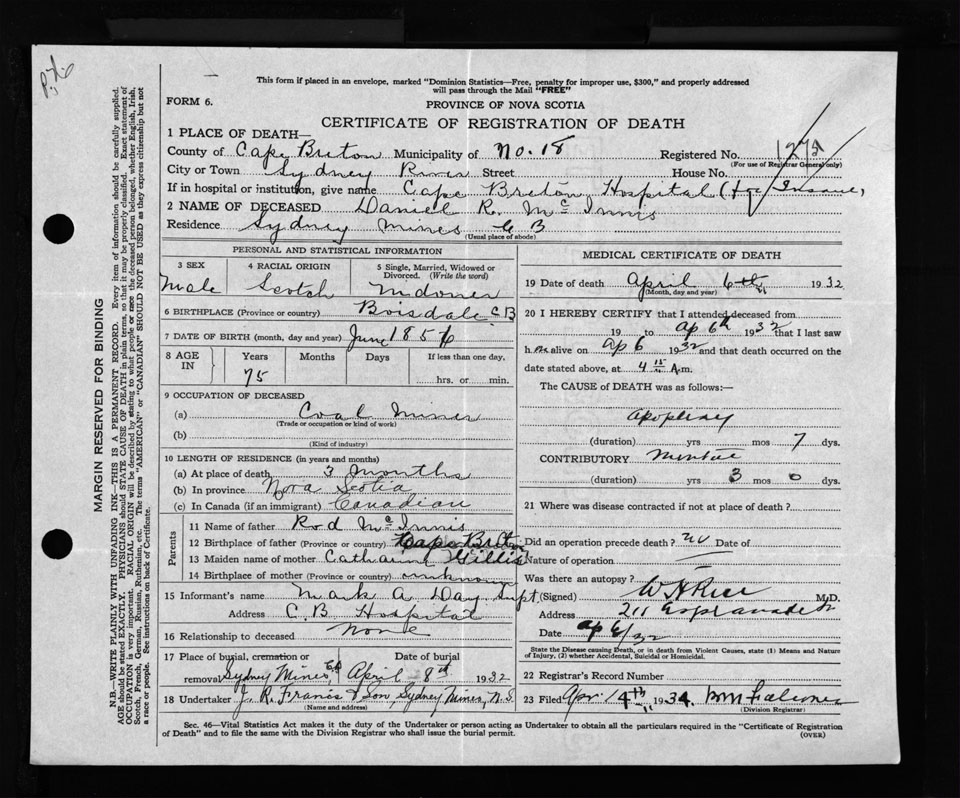 This form if placed in an envelope, marked "Dominion Statistics—Free, penalty for improper use, $300," and properly addressed
will pass through the Mail "FREE"
FORM 6.
PROVINCE OF NOVA SCOTIA
CERTIFICATE OF REGISTRATION OF DEATH
1 PLACE OF DEATH—
County of Cape Breton Municipality of No. 18 Registered No.
(For use of Registrar General only)
City or Town Sydney River Street House No.
If in hospital or institution, give name Cape Breton Hospital (for Insane)
2 NAME OF DECEASED Daniel R. McInnis
Residence Sydney Mines C B
(Usual place of abode)
PERSONAL AND STATISTICAL INFORMATION
3 SEX 4 RACIAL ORIGIN 5 Single, Married, Widowed or Divorced. (Write the word)
Male Scotch Widower
6 BIRTHPLACE (Province or country) Boisdale C B
7 DATE OF BIRTH (month, day and year) June 1856
8 AGE IN Years Months Days If less than one day,
75 hrs. or min.
9 OCCUPATION OF DECEASED
(a) Coal Miner
(Trade or occupation or kind of work)
(b)
(Kind of industry)
10 LENGTH OF RESIDENCE (in years and months)
(a) At place of death 3 months
(b) In province Nova Scotia
(c) In Canada (if an immigrant) Canadian
Parents
11 Name of father Rod McInnis
12 Birthplace of father (Province or country) Cape Breton
13 Maiden name of mother Catharine Gillis
14 Birthplace of mother (Province or country) unknown
15 Informant's name Mark A Day Supt
Address C. B. Hospital
16 Relationship to deceased None
17 Place of burial, cremation or removal Sydney Mines CB Date of burial April 8th 1932
18 Undertaker J. R. Francis & Son, Sydney Mines, N.S.
(Name and address)
MEDICAL CERTIFICATE OF DEATH
19 Date of death April 6th 1932
(Month, day and year)
20 I HEREBY CERTIFY that I attended deceased from
19 to Ap 6th 1932 that I last saw
h im alive on Ap 6 1932 and that death occurred on the
date stated above, at 4 15 A.m.
The CAUSE of DEATH was as follows:—
Apoplexy
(duration) yrs mos 7 dys.
CONTRIBUTORY
(duration) yrs 3 mos 0 dys.
21 Where was disease contracted if not at place of death?
Did an operation precede death? No Date of
Nature of operation
Was there an autopsy?
(Signed) M.D.
Address 211 Esplanade
Date Ap 6/32
State the Disease causing Death, or in death from Violent Causes, state (1) Means and
Nature of Injury, (2) whether Accidental, Suicidal or Homicidal.
22 Registrar's Record Number
23 Filed Apr 14th 1934.
(Division Registrar)
Sec. 46—Vital Statistics Act makes it the duty of the Undertaker or person acting as Undertaker to obtain all the particulars required in the "Certificate of Registration
of Death" and to file the same with the Division Registrar who shall issue the burial permit.
(OVER)
MARGIN RESERVED FOR BINDING
N.B.—WRITE PLAINLY WITH UNFADING INK—THIS IS A PERMANENT RECORD. Every item of information should be carefully supplied.
AGE should be stated EXACTLY. PHYSICIANS should STATE CAUSE OF DEATH in plain terms, so that it may be properly classified. Exact statement of
OCCUPATION is very important. RACIAL ORIGIN will be described by stating to what people or race the deceased person belonged, whether English, Irish,
Scotch, French, German, Russian, Ruthenian, etc. The terms "AMERICAN" or "CANADIAN" SHOULD NOT BE USED as they express citizenship but not
a race or people. See instructions on back of Certificate.